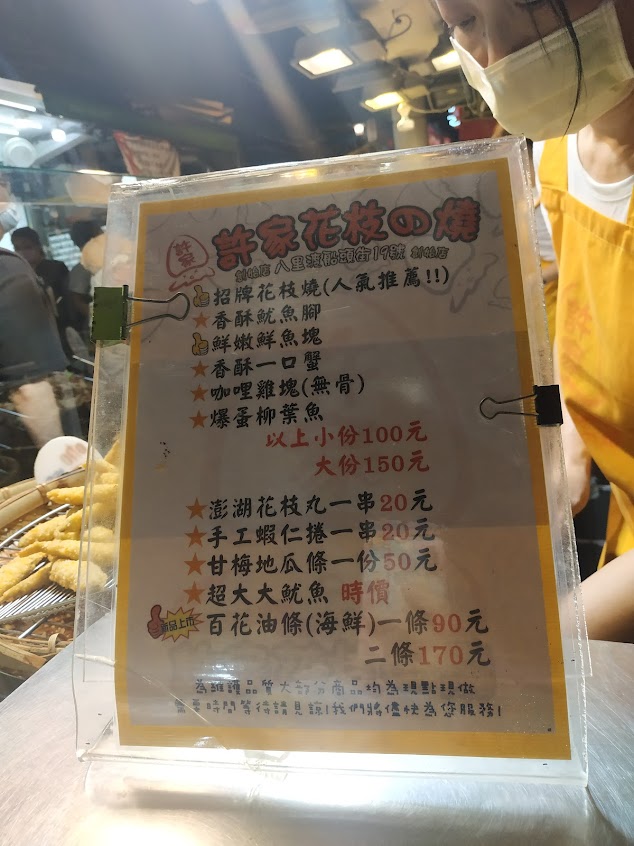 許家
許家花枝の燒
創始店 八里渡船頭街19號 創始店
招牌花枝燒(人氣推薦!!)
★香酥魷魚腳
鮮嫩鮮魚塊
★香酥一口蟹
★咖哩雞塊(無骨)
★爆蛋柳葉魚
以上小份100元
大份150元
★澎湖花枝丸一串20元
★手工蝦仁捲一串20元
★甘梅地瓜條一份50元
★超大大魷魚 時價
新品上市 百花油條(海鮮)一條90元
二條170元
為維護品質大部分商品均為現點現做
需要時間等待請見諒!我們將儘快為您服務!